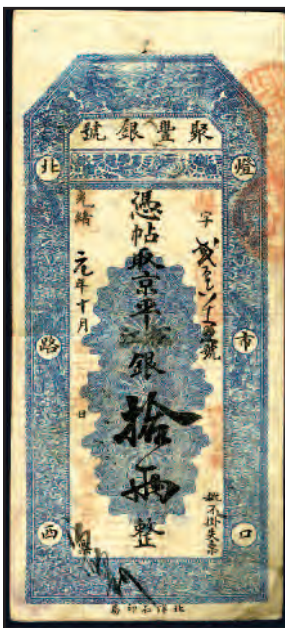 聚豐銀號
燈市口
北路西
字 號
憑帖取京平松江銀拾兩整
光緒元年十月 日
概不掛失票
北洋石印局